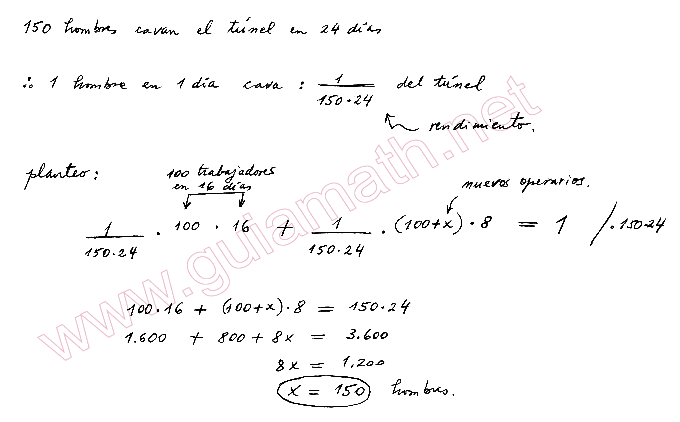 150 hombres cavan el túnel en 24 días
∴ 1 hombre en 1 día cava : 1/(150·24) del túnel
rendimiento.
planteo:
100 trabajadores
en 16 días
nuevos operarios.
1/(150·24) · 100 · 16 + 1/(150·24) · (100+x) · 8 = 1 /·150·24
100·16 + (100+x)·8 = 150·24
1.600 + 800 + 8x = 3.600
8x = 1,200
x = 150 hombres.
www.guiamath.net